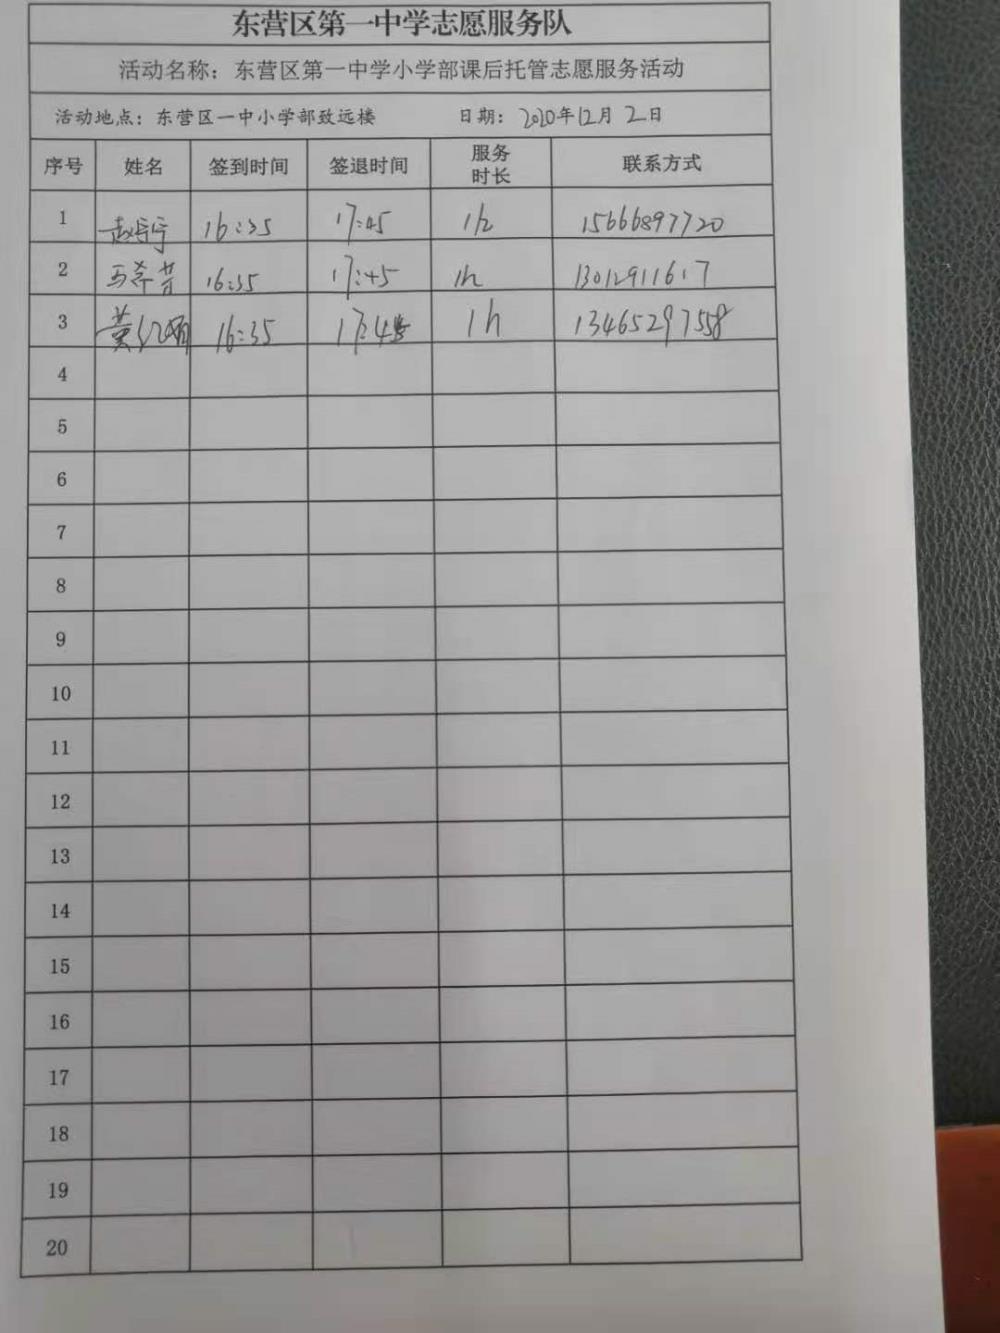 东营区第一中学志愿服务队
活动名称：东营区第一中学小学部课后托管志愿服务活动
活动地点：东营区一中小学部致远楼 日期：2020年12月2日
序号 姓名 签到时间 签退时间 服务时长 联系方式
1 赵 16:35 17:45 1h 15666897720
2 马 16:35 17:45 1h 13012911617
3 黄 16:35 17:45 1h 13465297558
4
5
6
7
8
9
10
11
12
13
14
15
16
17
18
19
20